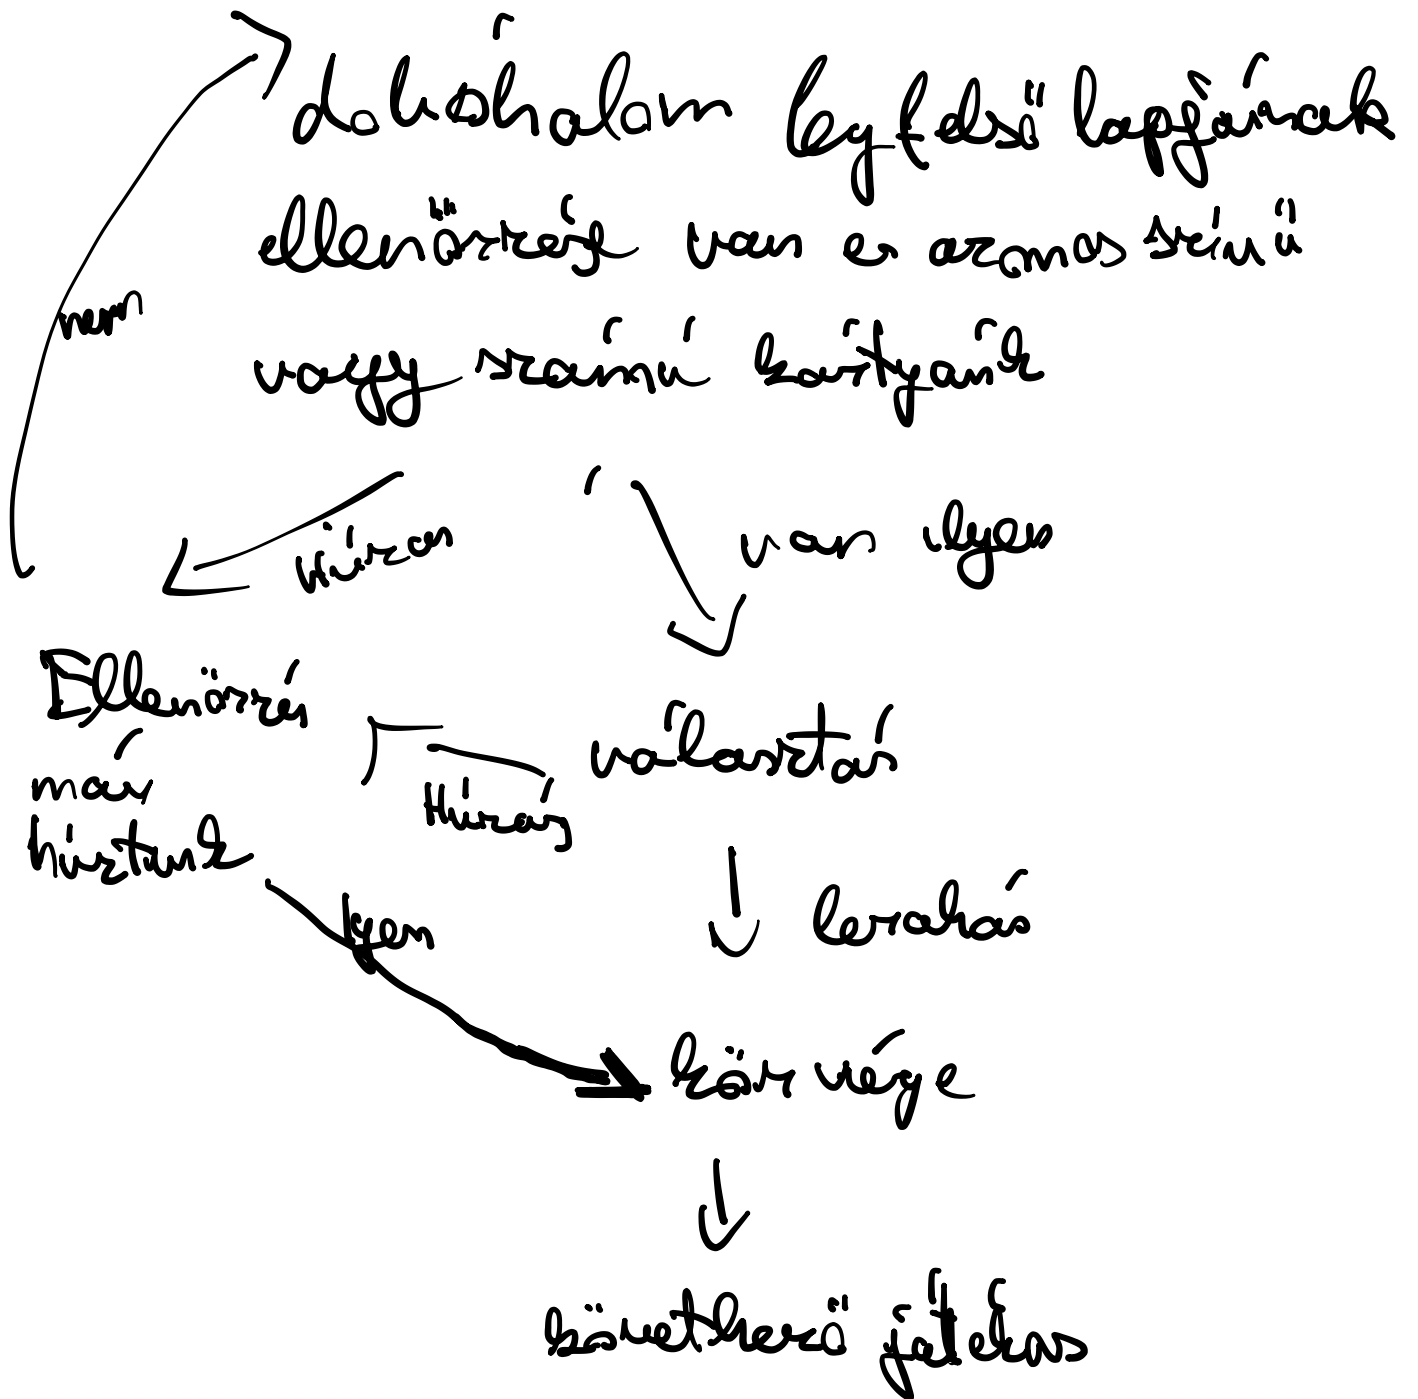 dobóhalom legfelső lapjának
ellenőrzése van e azonos színű
vagy számú kártyánk
nem
Húzás
van ilyen
Ellenőrzés
már
húztunk
választás
Húzás
lerakás
Igen
kör vége
következő játékos